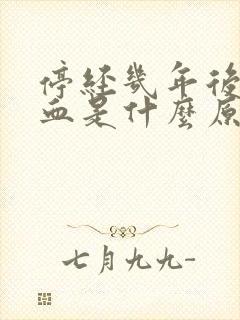 停經幾年後
血是什麼原
七月九九-